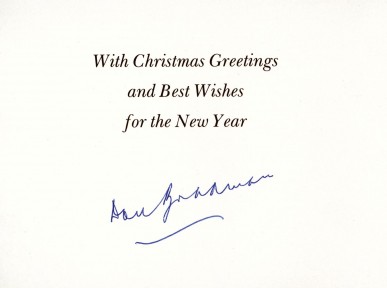 With Christmas Greetings
and Best Wishes
for the New Year
Don Bradman